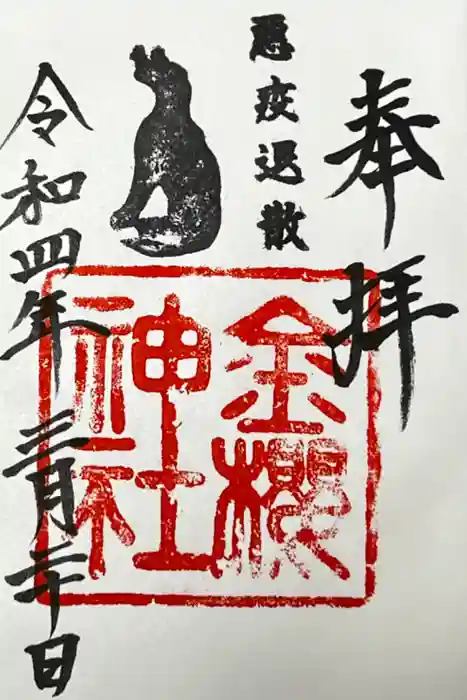 奉拝
悪疫退散
金櫻
神社
令和四年三月二十日